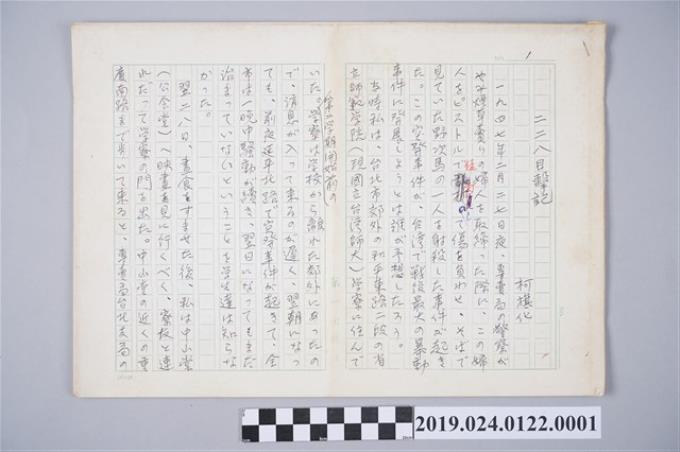 1
二二八目撃記
柯旗化
一九四七年二月二七日夜、専賣局の警察が
やみ煙草賣りの婦人を取締った際に、この婦
人をピストルで
て傷を負わせ、そばで
見ていた野次馬の一人を射殺した事件が起き
た。この突発事件が、台湾で戦後最大の暴動
事件に発展しようとは誰が予想したろう。
当時私は、台北市郊外の和平東路二段の省
立師範学院（現国立台湾師大）学寮に住んで
いた。学寮は学校から離れた郊外にあったの
学期開始前の
で、消息が入って来るのが遅く、翌朝になっ
ても、前夜延平北路で突発事件が起きて、全
市は一晩中騒動が続き、翌日になってもまだ
治まっていないということを学生達は知らな
かった。
翌二八日、晝食をすませた後、私は中山堂
（公会堂）へ映畫を見に行くべく、寮友と連
れだって学寮の門を出た。中山堂の近くの重
慶南路まで歩いて来ると、専賣局台北支局の
2019.024.0122.0001